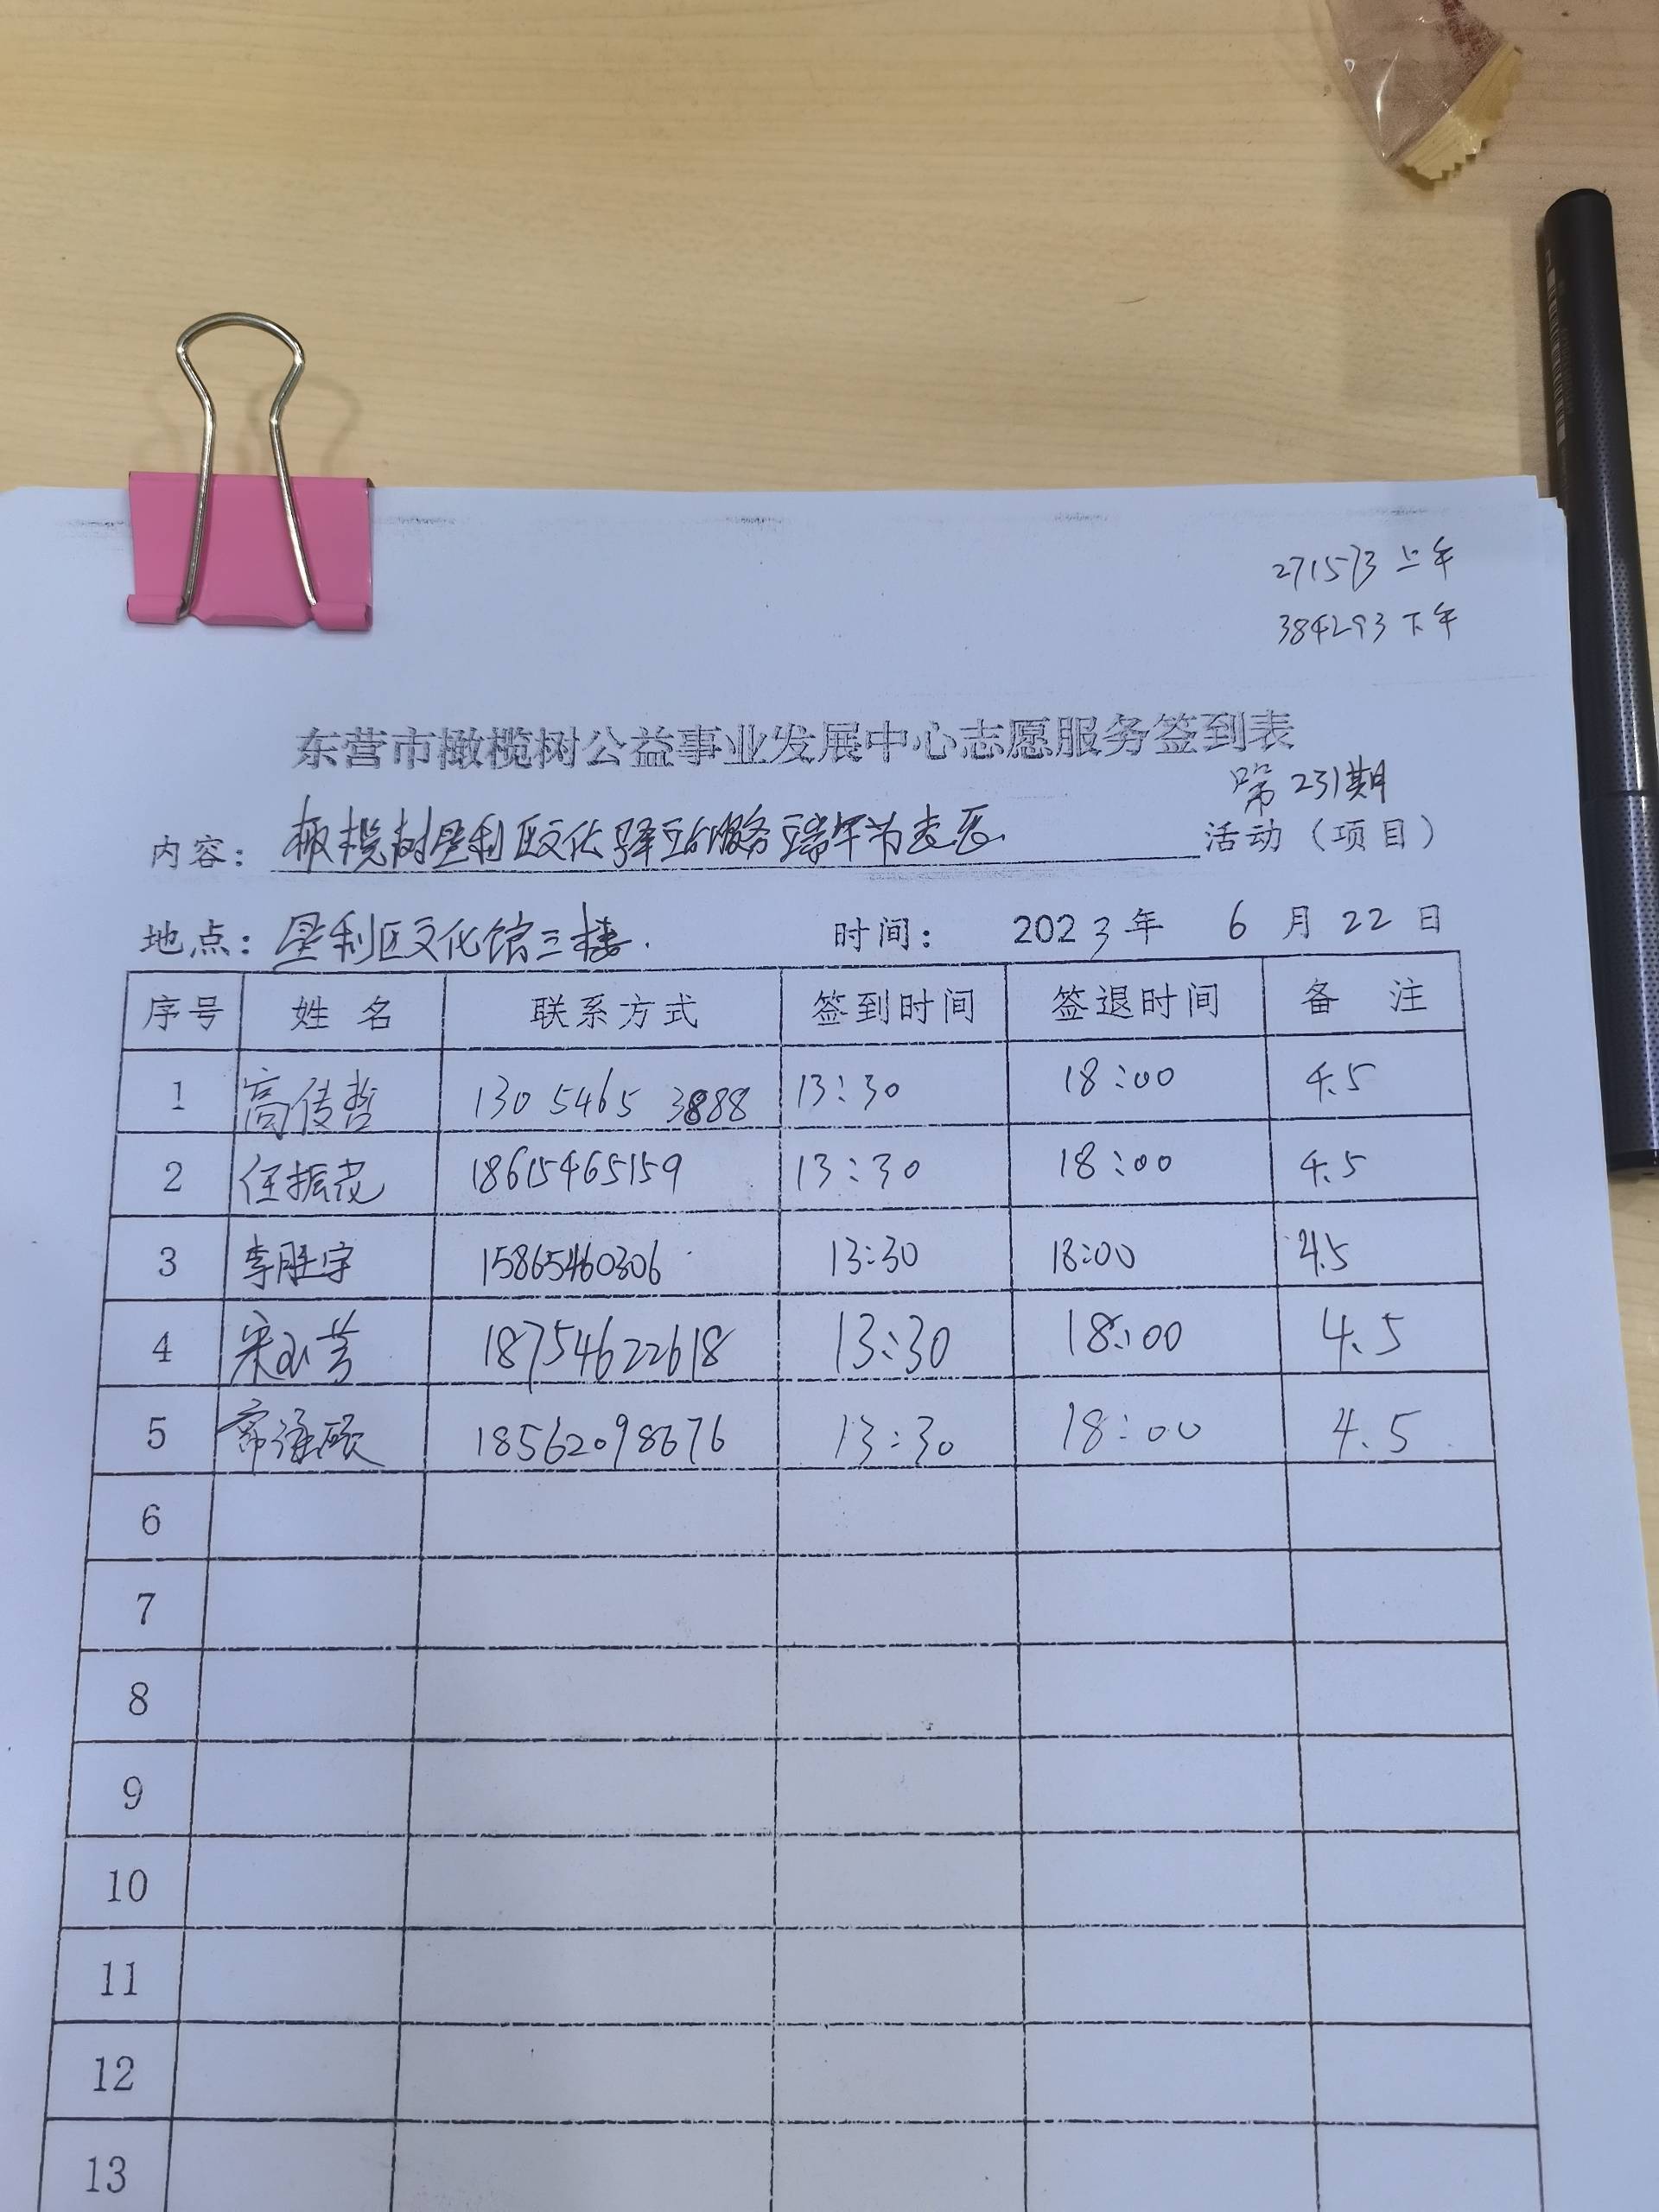 271573 上午
384293 下午
东营市橄榄树公益事业发展中心志愿服务签到表
第231期
内容: 橄榄树垦利区文化驿站服务端午节志愿 活动(项目)
地点: 垦利区文化馆三楼. 时间: 2023年 6月22日
序号 姓名 联系方式 签到时间 签退时间 备注
1 高传哲 130 5465 3888 13:30 18:00 4.5
2 任振花 18615465159 13:30 18:00 4.5
3 李胜宇 15865460306 13:30 18:00 4.5
4 宋玉芳 18754622618 13:30 18:00 4.5
5 18562098676 13:30 18:00 4.5
6
7
8
9
10
11
12
13